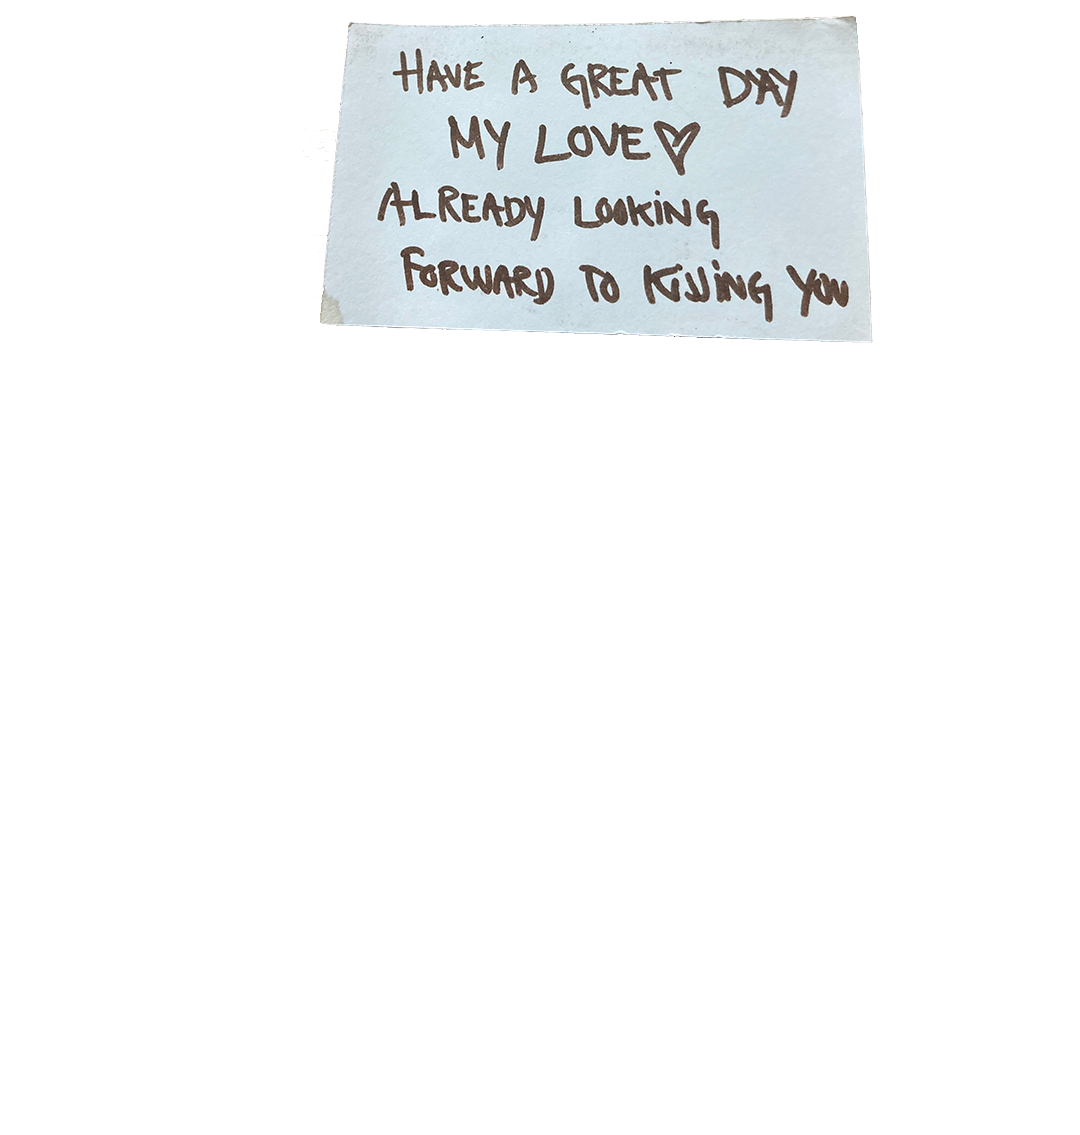 HAVE A GREAT DAY
MY LOVE♡
ALREADY LOOKING
FORWARD TO KISSING YOU